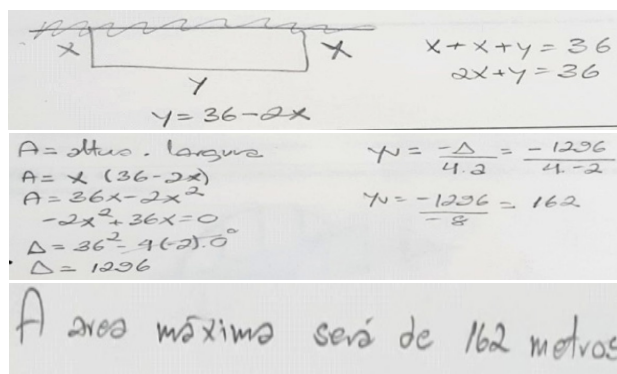 x x
x + x + y = 36
2x + y = 36
y
y = 36 - 2x
A = altura . largura
A = x (36 - 2x)
A = 36x - 2x²
-2x² + 36x = 0
Δ = 36² - 4(-2).0
Δ = 1296
yv = -Δ / 4.a = -1296 / 4.-2
yv = -1296 / -8 = 162
A area máxima será de 162 metros